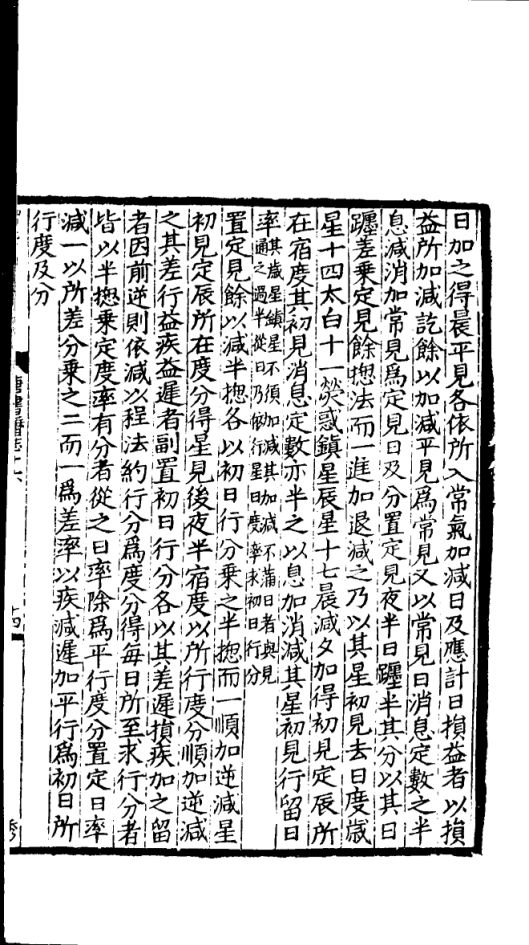 日加之得晨平見各依所入常氣加減日及應計日損益者以損
益所加減訖餘以加減平見爲常見又以常見日消息定數之半
息減消加常見爲定見日及分置定見夜半日躔半其分以其日
躔差乗定見餘揔法而一進加退減之乃以其星初見去日度歲
星十四太白十一熒惑鎮星辰星十七晨減夕加得初見定辰所
在宿度其初見消息定數亦半之以息加消減其星初見行留日
率其歲星鎮星不須加減其加減不蒲日者與見
通之過半從日乃依行星日度率求初日行分
置定見餘以減半揔各以初日行分乗之半揔而一順加逆減星
初見定辰所在度分得星見後夜半宿度以所行度分順加逆減
之其差行益疾益遲者副置初日行分各以其差遲損疾加之留
者因前逆則依減以程法約行分爲度分得每日所至求行分者
皆以半揔乗定度率有分者從之日率除爲平行度分置定日率
減一以所差分乗之二而一爲差率以疾減遲加平行爲初日所
行度及分
唐書曆志十六
十四